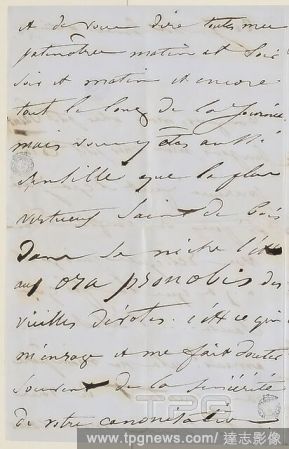 et de vous dire toutes mes
patenôtres matin et soir
soir et matin et encore
tout le long de la journée
mais vous y êtes aussi
sensible que le plus
vertueux saint de bois
dans sa niche l'est
aux ora pro nobis des
vieilles dévotes. c'est ce qui
m'enrage et me fait douter
souvent de la sincérité
de votre canonisation
TPG
www.tpgnews.com/達志影像